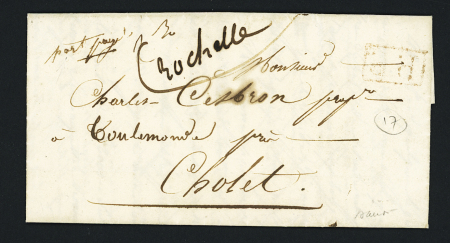 port payé
Rochelle
Monsieur
Charles Desbron propre
à Toulemonde près
Cholet.
17